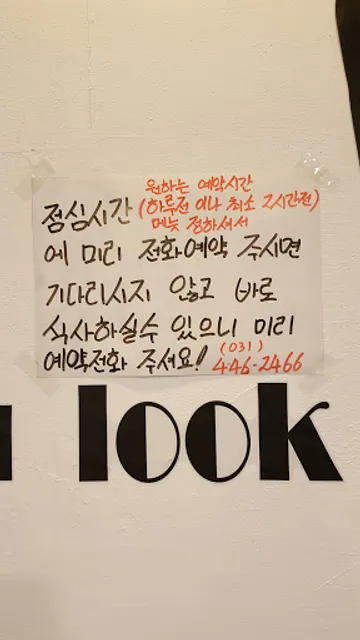 원하는 예약시간
점심시간 (하루전 이나 최소 2시간전)
메뉴 정하셔서
에 미리 전화예약 주시면
기다리시지 않고 바로
식사하실수 있으니 미리
예약전화 주서요! (031)
446-2466
look